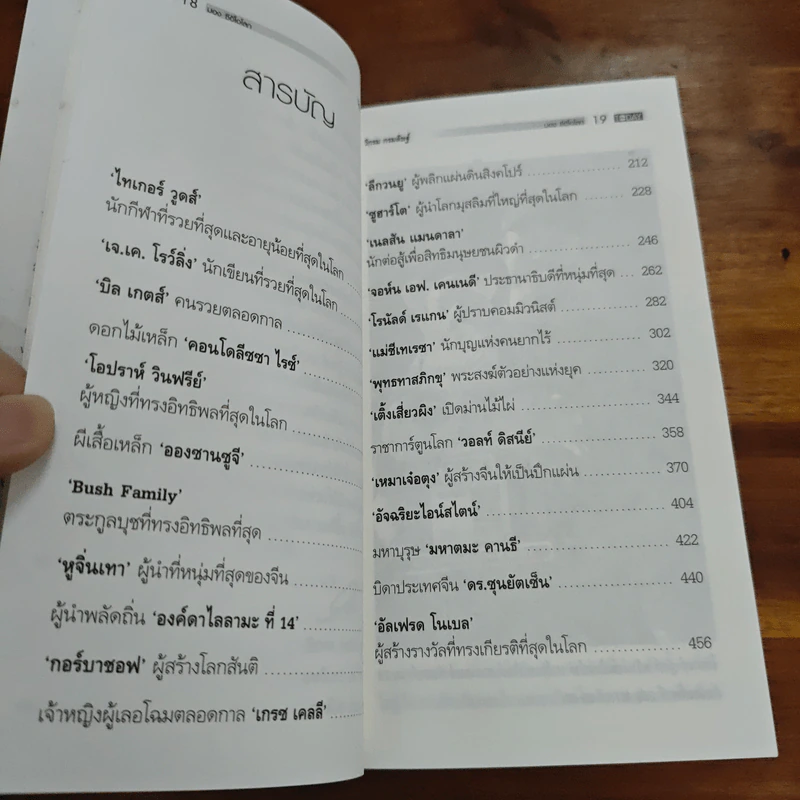 18
มอง ซีอีโอโลก
สารบัญ
'ไทเกอร์ วูดส์'
นักกีฬาที่รวยที่สุดและอายุน้อยที่สุดในโลก
'เจ.เค. โรว์ลิ่ง' นักเขียนที่รวยที่สุดในโลก
'บิล เกตส์' คนรวยตลอดกาล
ดอกไม้เหล็ก 'คอนโดลีซซา ไรซ์'
'โอปราห์ วินฟรีย์'
ผู้หญิงที่ทรงอิทธิพลที่สุดในโลก
ผีเสื้อเหล็ก 'อองซานซูจี'
'Bush Family'
ตระกูลบุชที่ทรงอิทธิพลที่สุด
'หูจิ่นเทา' ผู้นำที่หนุ่มที่สุดของจีน
ผู้นำพลัดถิ่น 'องค์ดาไลลามะ ที่ 14'
'กอร์บาชอฟ' ผู้สร้างโลกสันติ
เจ้าหญิงผู้เลอโฉมตลอดกาล 'เกรซ เคลลี่'
วิกรม กรมดิษฐ์ มอง ซีอีโอโลก 19
'ลีกวนยู' ผู้พลิกแผ่นดินสิงคโปร์ 212
'ซูฮาร์โต' ผู้นำโลกมุสลิมที่ใหญ่ที่สุดในโลก 228
'เนลสัน แมนดาลา'
นักต่อสู้เพื่อสิทธิมนุษยชนผิวดำ 246
'จอห์น เอฟ. เคนเนดี' ประธานาธิบดีที่หนุ่มที่สุด 262
'โรนัลด์ เรแกน' ผู้ปราบคอมมิวนิสต์ 282
'แม่ชีเทเรซา' นักบุญแห่งคนยากไร้ 302
'พุทธทาสภิกขุ' พระสงฆ์ตัวอย่างแห่งยุค 320
'เติ้งเสี่ยวผิง' เปิดม่านไม้ไผ่ 344
ราชาการ์ตูนโลก 'วอลท์ ดิสนีย์' 358
'เหมาเจ๋อตุง' ผู้สร้างจีนให้เป็นปึกแผ่น 370
'อัจฉริยะไอน์สไตน์' 404
มหาบุรุษ 'มหาตมะ คานธี' 422
บิดาประเทศจีน 'ดร.ซุนยัตเซ็น' 440
'อัลเฟรด โนเบล'
ผู้สร้างรางวัลที่ทรงเกียรติที่สุดในโลก 456